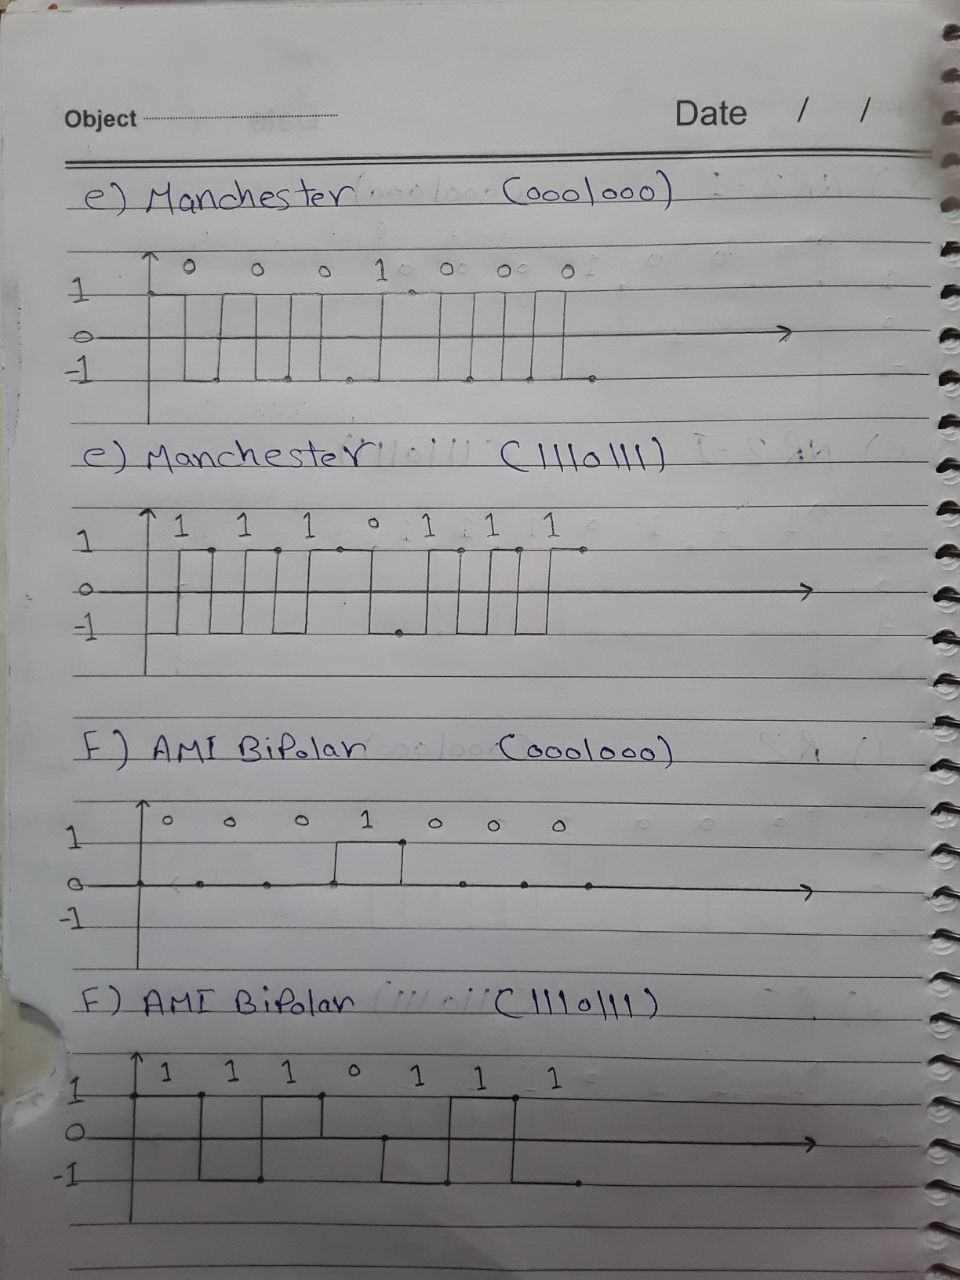 Object
Date / /
e) Manchester (0001000)
0 0 0 1 0 0 0
1
0
-1
e) Manchester (1110111)
1 1 1 0 1 1 1
1
0
-1
F) AMI Bipolar (0001000)
0 0 0 1 0 0 0
1
0
-1
F) AMI Bipolar (1110111)
1 1 1 0 1 1 1
1
0
-1